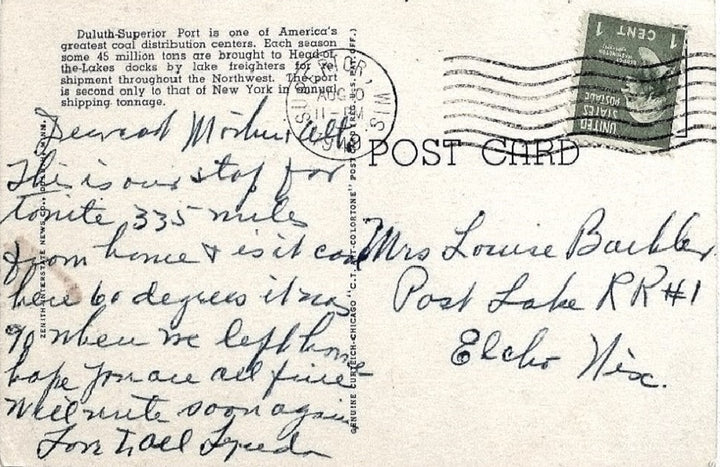 Duluth-Superior Port is one of America's
greatest coal distribution centers. Each season
some 45 million tons are brought to Head-of-
the-Lakes docks by lake freighters for re-
shipment throughout the Northwest. The port
is second only to that of New York in annual
shipping tonnage.
Dearest Mother & All
This is our stop for
tonite 335 miles
from home & is it cool
here 60 degrees it was
90 when we left home
hope you are all fine
Will write soon again
Love to all
ZENITH INTERSTATE NEWS CO., DULUTH, MINN.
GENUINE CURTEICH-CHICAGO "C.T. ART-COLORTONE" POST CARD (REG. U.S. PAT. OFF.)
SUPERIOR, WIS.
AUG 10
11 - PM
POST CARD
1 CENT 1
UNITED
STATES
POSTAGE
Mrs Louise
Post Lake RR#1
Elcho Wisc.